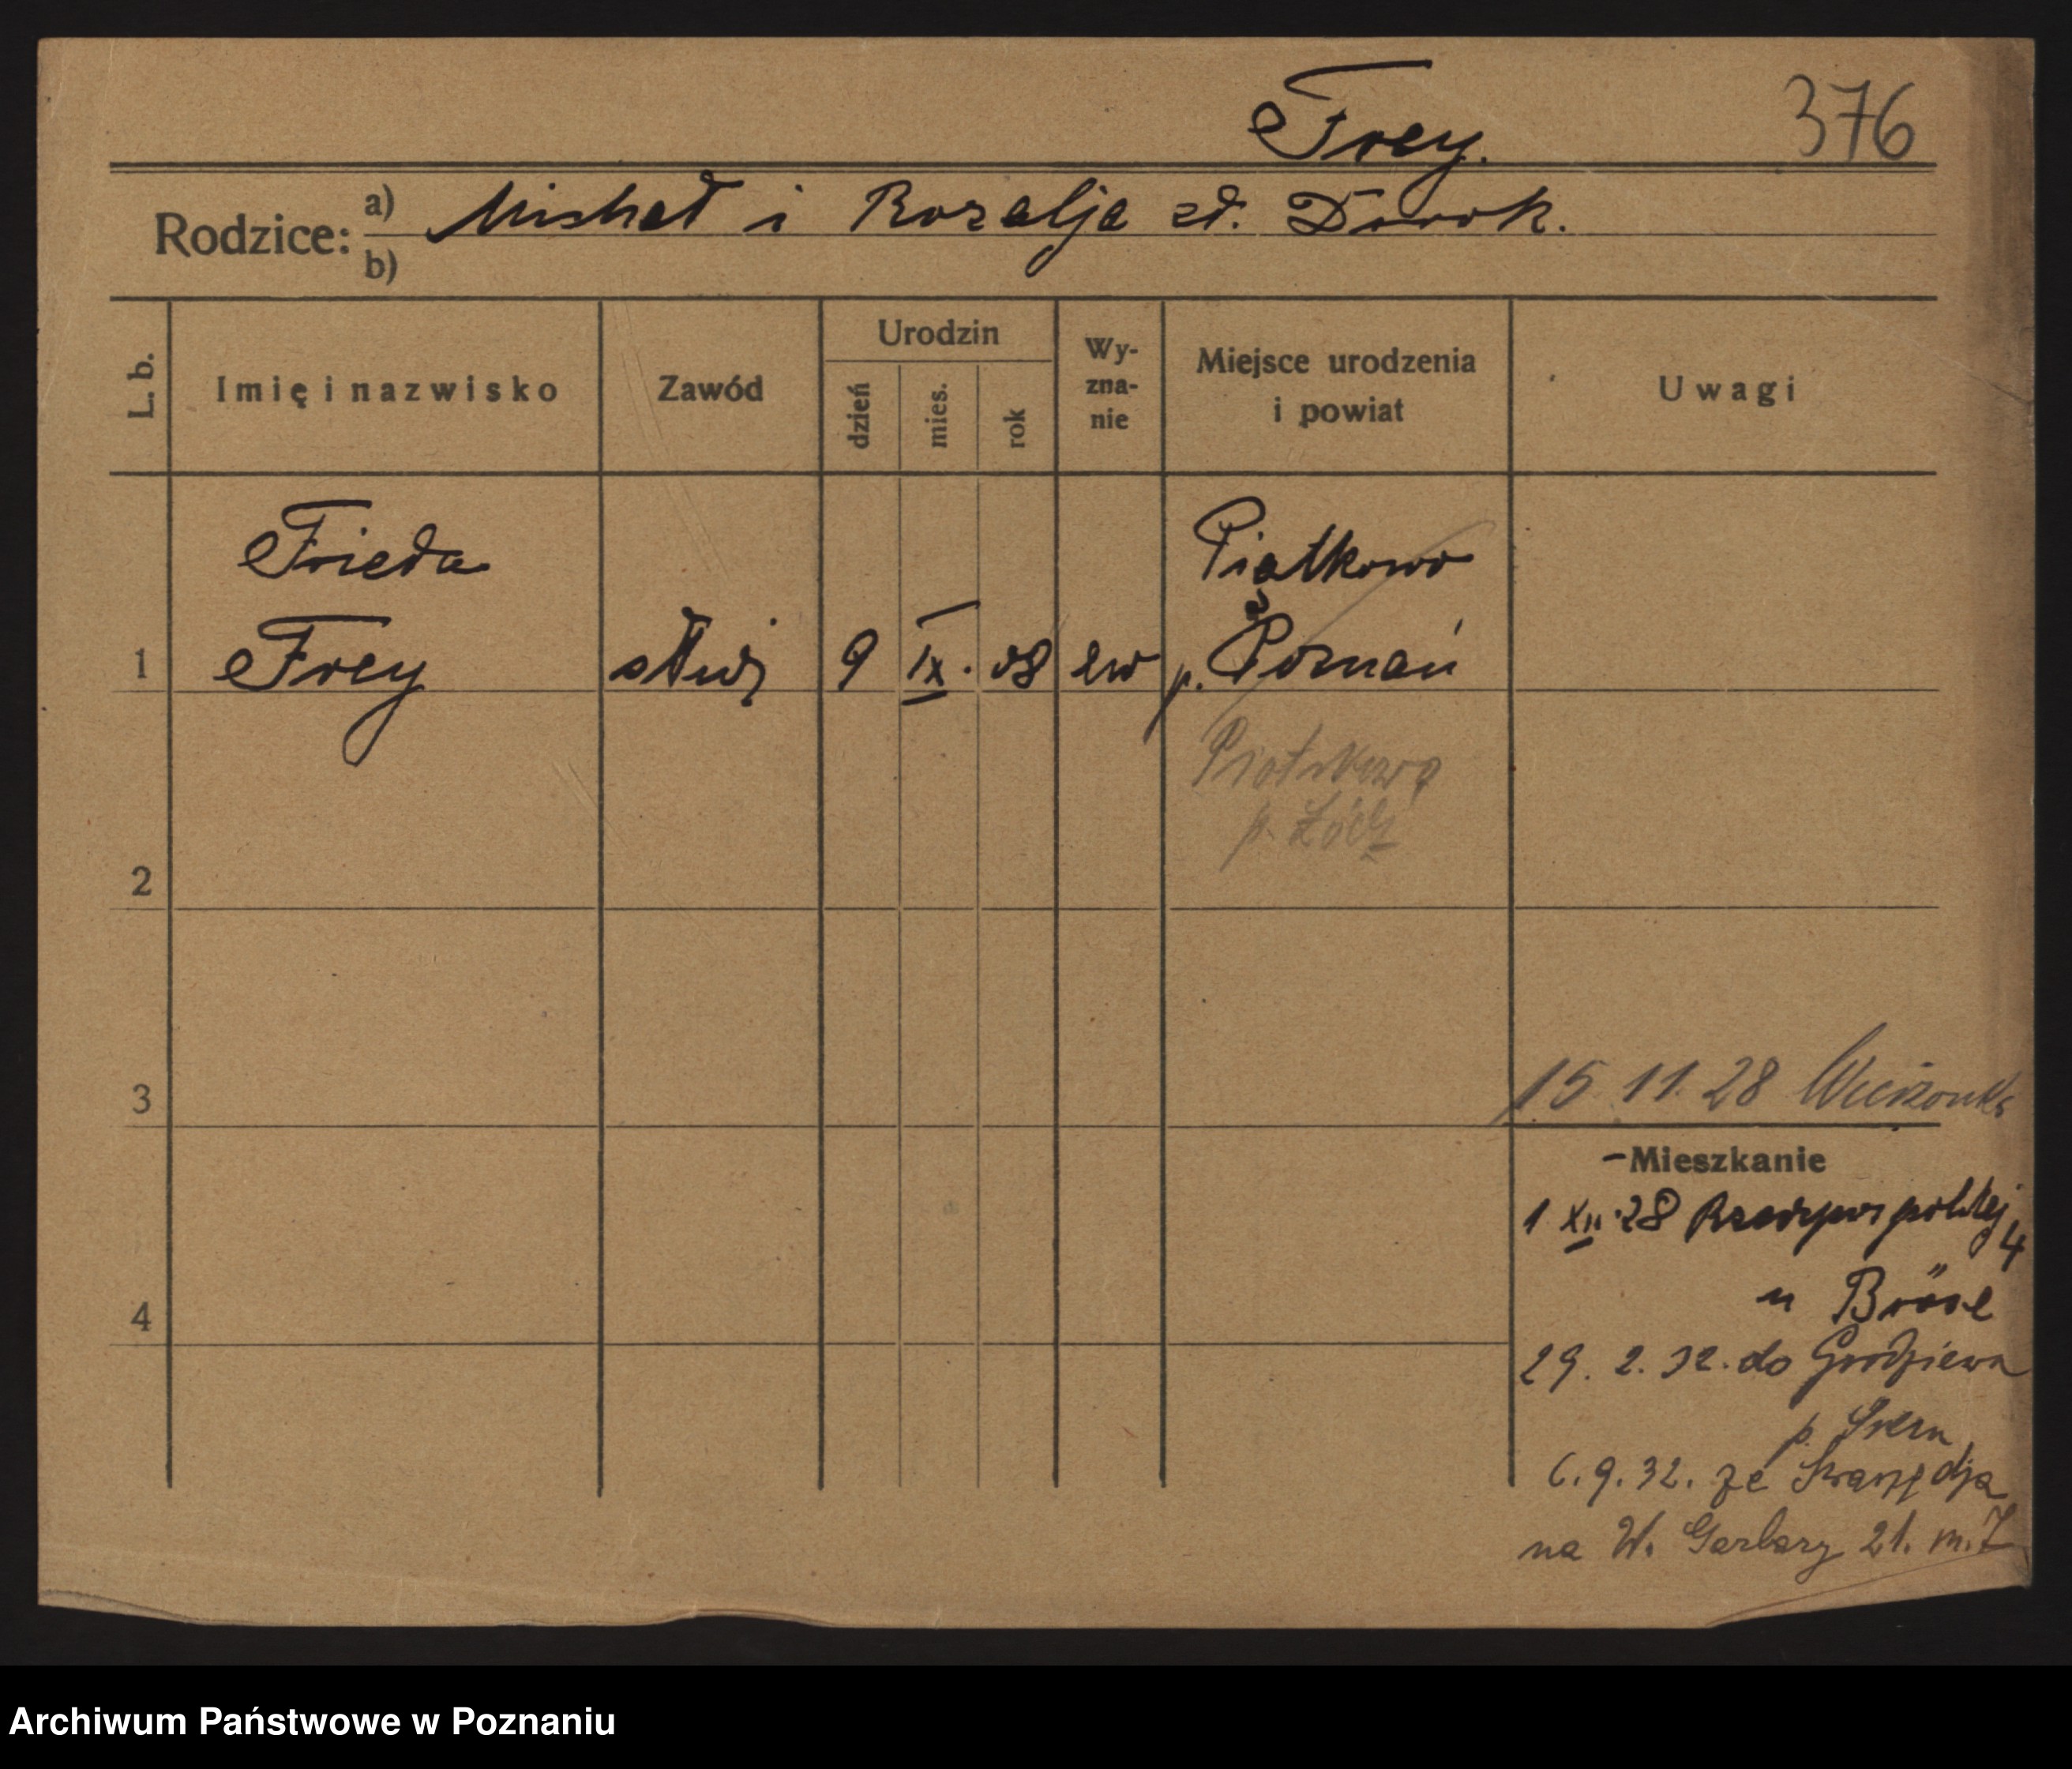 Frey.
376
Rodzice: a) Michał i Rozalja zd. Dwok.
b)
L. b.
Imię i nazwisko
Zawód
Urodzin
dzień
mies.
rok
Wy-
zna-
nie
Miejsce urodzenia
i powiat
Uwagi
Frieda
Piątkowo
1 Frey służ 9 IX. 08 ew p. Poznań
Piotrkowo
p. Łódź
2
3
15 11. 28
Mieszkanie
4
1 XII. 28 4
u
29. 2. 32. do
p.
6. 9. 32. ze
na W. Garbary 21. m. 7
Archiwum Państwowe w Poznaniu